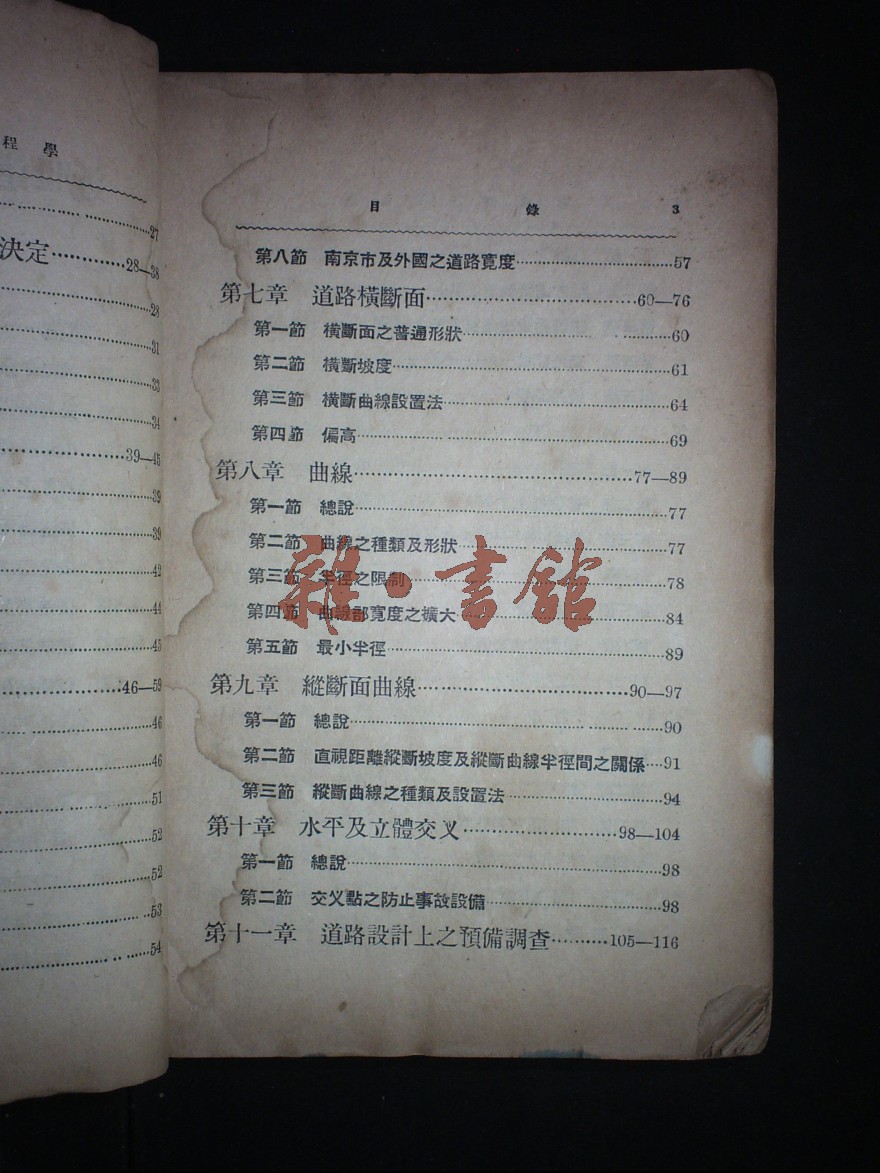 程 學
27
決定············28—38
28
31
33
34
39—45
39
39
42
44
45
46—59
46
46
51
52
52
53
54
目 錄 3
第八節 南京市及外國之道路寬度············57
第七章 道路橫斷面············60—76
第一節 橫斷面之普通形狀············60
第二節 橫斷坡度············61
第三節 橫斷曲線設置法············64
第四節 偏高············69
第八章 曲線············77—89
第一節 總說············77
第二節 曲線之種類及形狀············77
第三節 半徑之限制············78
第四節 曲線部寬度之擴大············84
第五節 最小半徑············89
第九章 縱斷面曲線············90—97
第一節 總說············90
第二節 直視距離縱斷坡度及縱斷曲線半徑間之關係····91
第三節 縱斷曲線之種類及設置法············94
第十章 水平及立體交叉············98—104
第一節 總說············98
第二節 交叉點之防止事故設備············98
第十一章 道路設計上之預備調查·········105—116
雜·書館